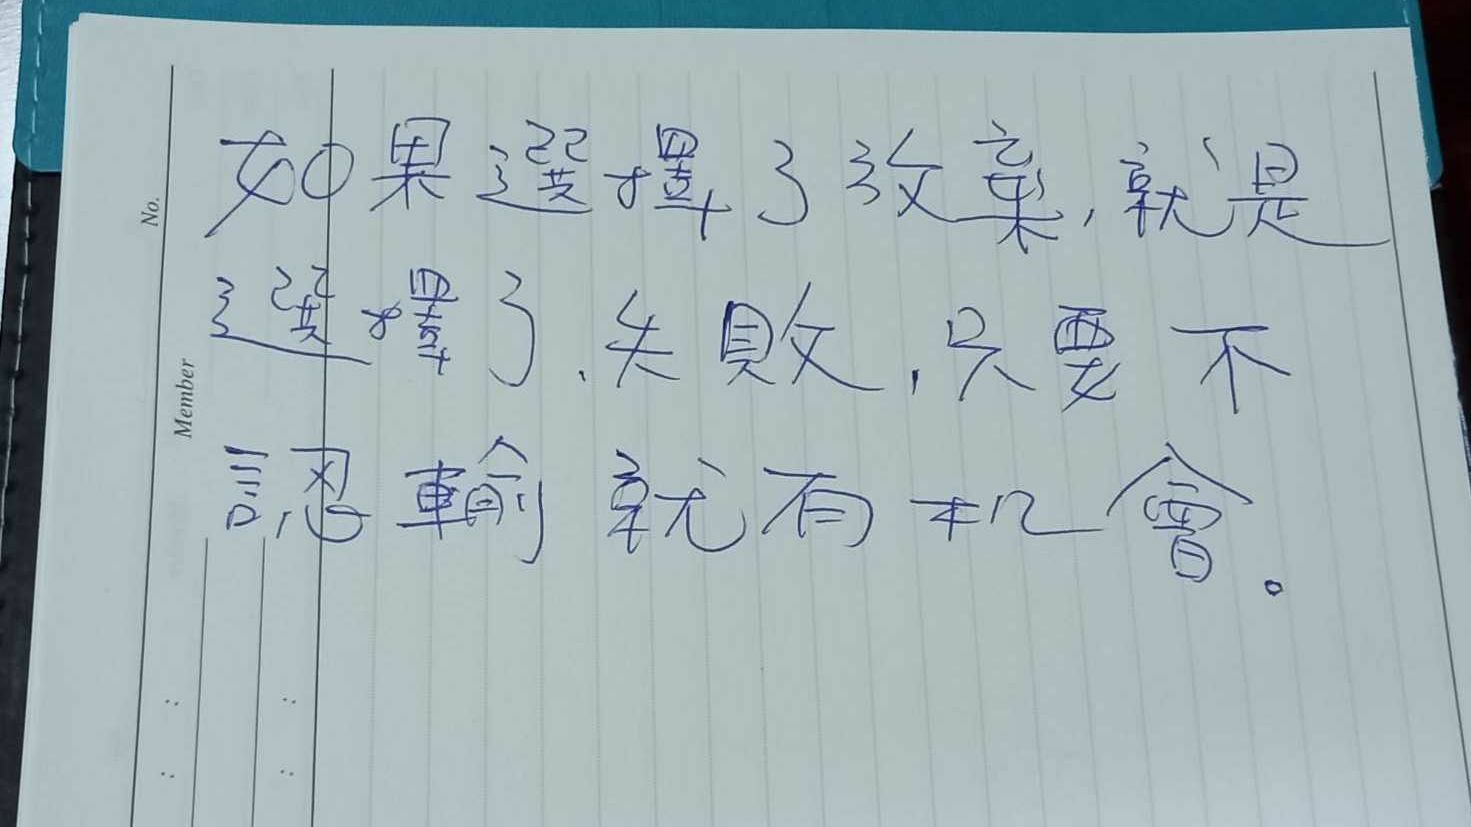 No.
Member
如果選擇了放棄,就是
選擇了.失敗,只要不
認輸就有机會。